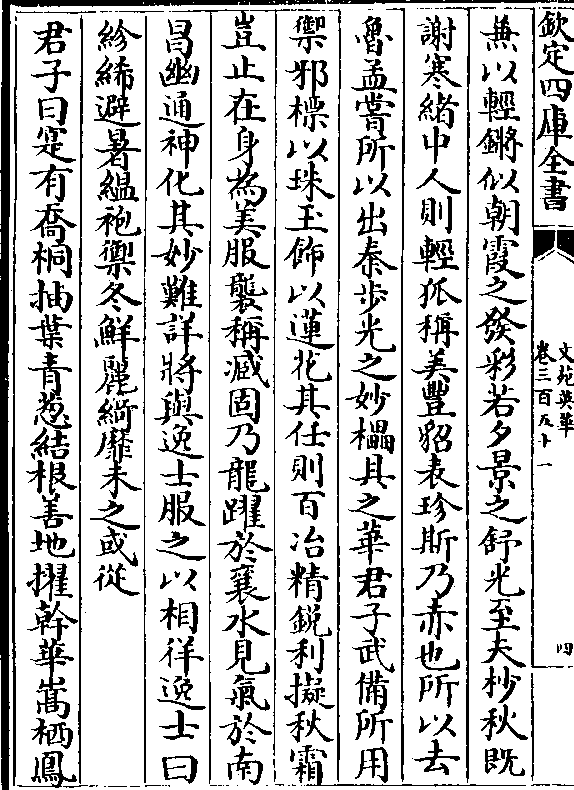 欽定四庫全書
文苑英華
卷三百五十一
四
兼以輕鏘似朝霞之發彩若夕景之舒光至夫杪秋既
謝寒緒中人則輕狐稱美豐貂表珍斯乃赤也所以去
魯孟嘗所以出秦步光之妙櫑具之華君子武備所用
禦邪標以珠玉飾以蓮花其任則百冶精銳利擬秋霜
豈止在身為美服襲稱臧固乃龍躍於襄水見氣於南
昌幽通神化其妙難詳將與逸士服之以相徉逸士曰
紾絺避暑緼袍禦冬鮮麗綺靡未之或從
君子曰寔有喬桐抽葉青葱結根善地擢幹華嵩栖鳳